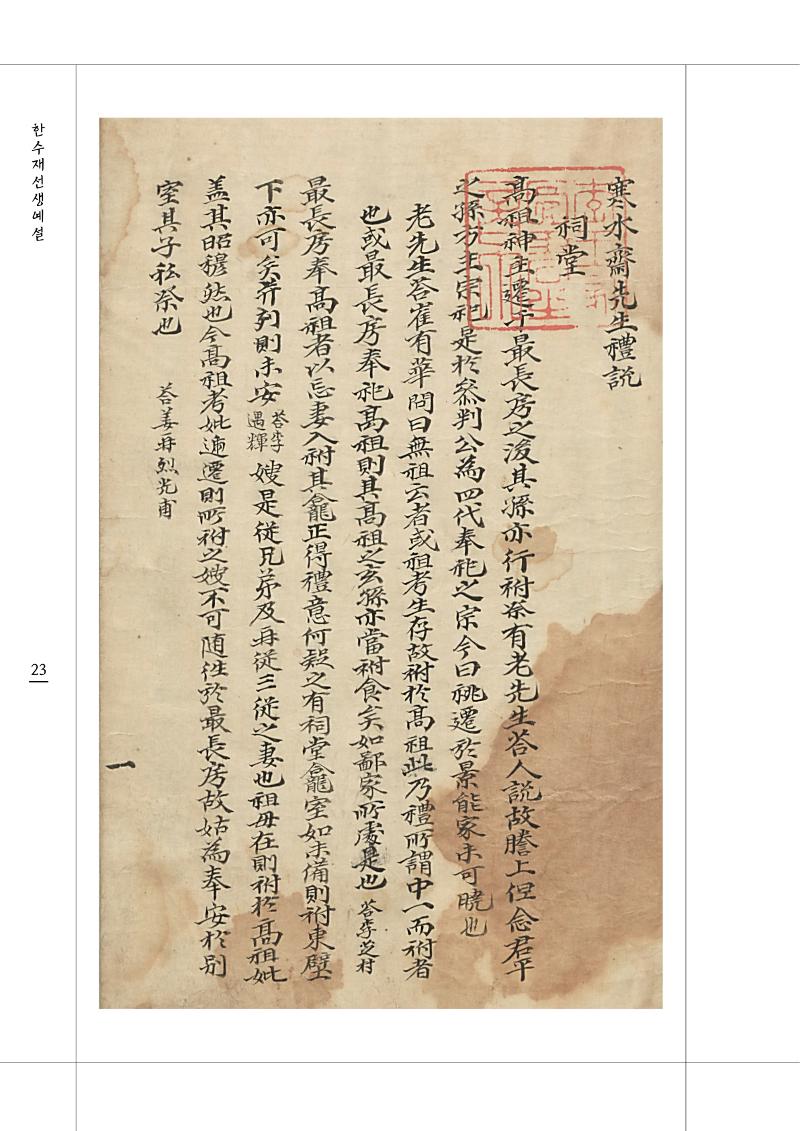 寒水齋先生禮說
祠堂
高祖神主遷于最長房之後其孫亦行祔祭有老先生答人說故謄上但念君平
之孫方主宗祀是於參判公為四代奉祀之宗今曰祧遷於景能家未可曉也
老先生答崔有華問曰無祖云者或祖考生存故祔於高祖此乃禮所謂中一而祔者
也或最長房奉祀高祖則其高祖之玄孫亦當祔食矣如鄙家所處是也 答李芝村
最長房奉高祖者以忘妻入祔其龕正得禮意何疑之有祠堂龕室如未備則祔東壁
下亦可矣並列則未安 答李遇輝 嫂是從兄弟及再從三從之妻也祖毋在則祔於高祖妣
盖其昭穆然也今高祖考妣遞遷則所祔之嫂不可随徃於最長房故姑為奉安於別
室其子私祭也 答姜再烈光甫
一
한수재선생예설
23